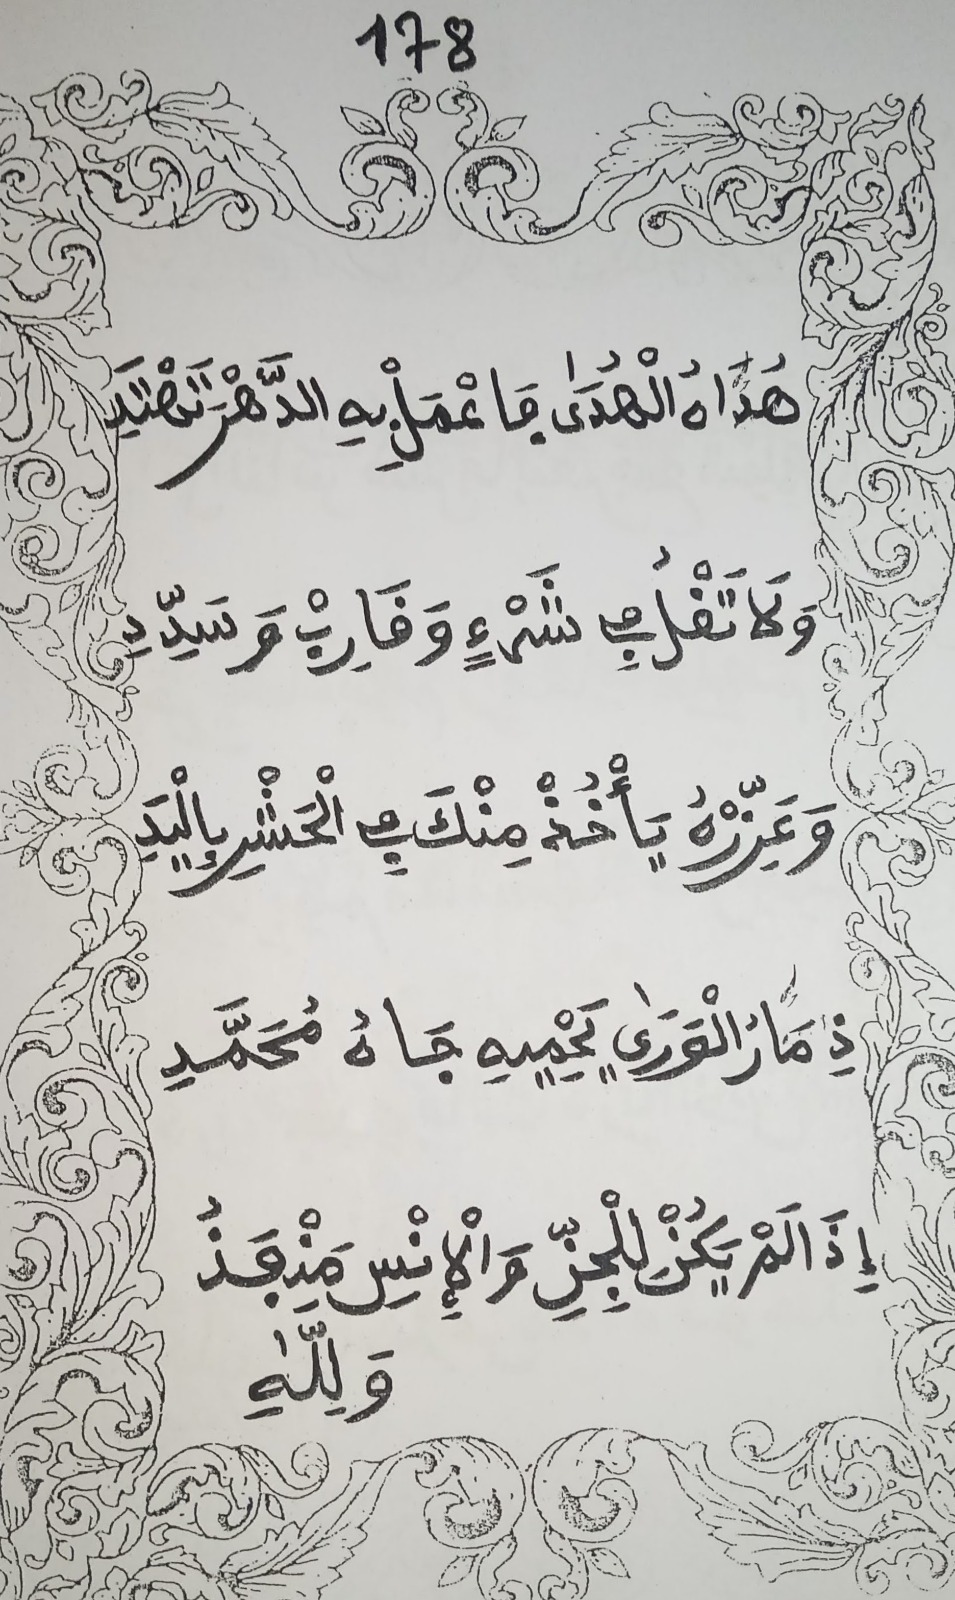 178
هُدَاهُ الْهُدَىٰ فَاعْمَلْ بِهِ الدَّهْرَ تَهْتَدِ
وَلَا تَغْلُ فِي شَيْءٍ وَقَارِبْ وَسَدِّدِ
وَعَزِّرْهُ يَأْخُذْ مِنْكَ فِي الْحَشْرِ بِالْيَدِ
ذِمَارُ الْوَرَىٰ يَحْمِيهِ جَاهُ مُحَمَّدِ
إِذَا لَمْ يَكُنْ لِلْجِنِّ وَالْإِنْسِ مُنْفِذُ
وَلِلَّهِ